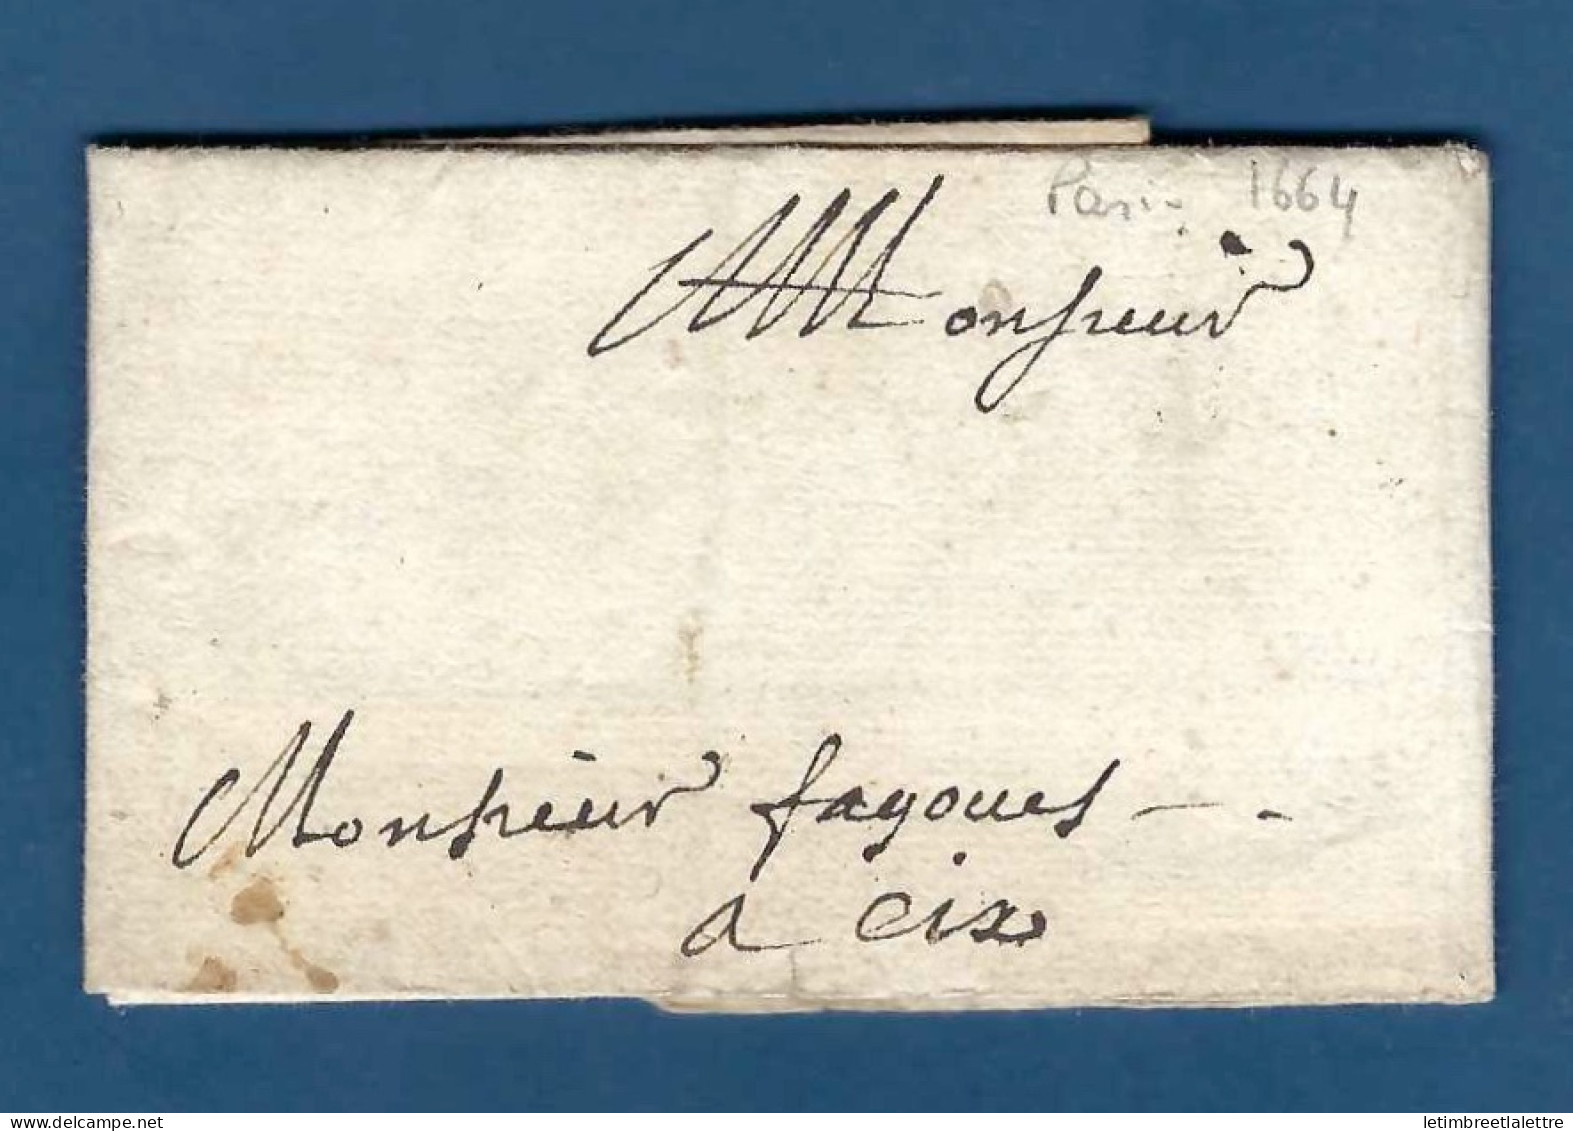 Paris 1664
Monsieur
Monsieur fagoues
a aix
letimbreetlalettre
www.delcampe.net